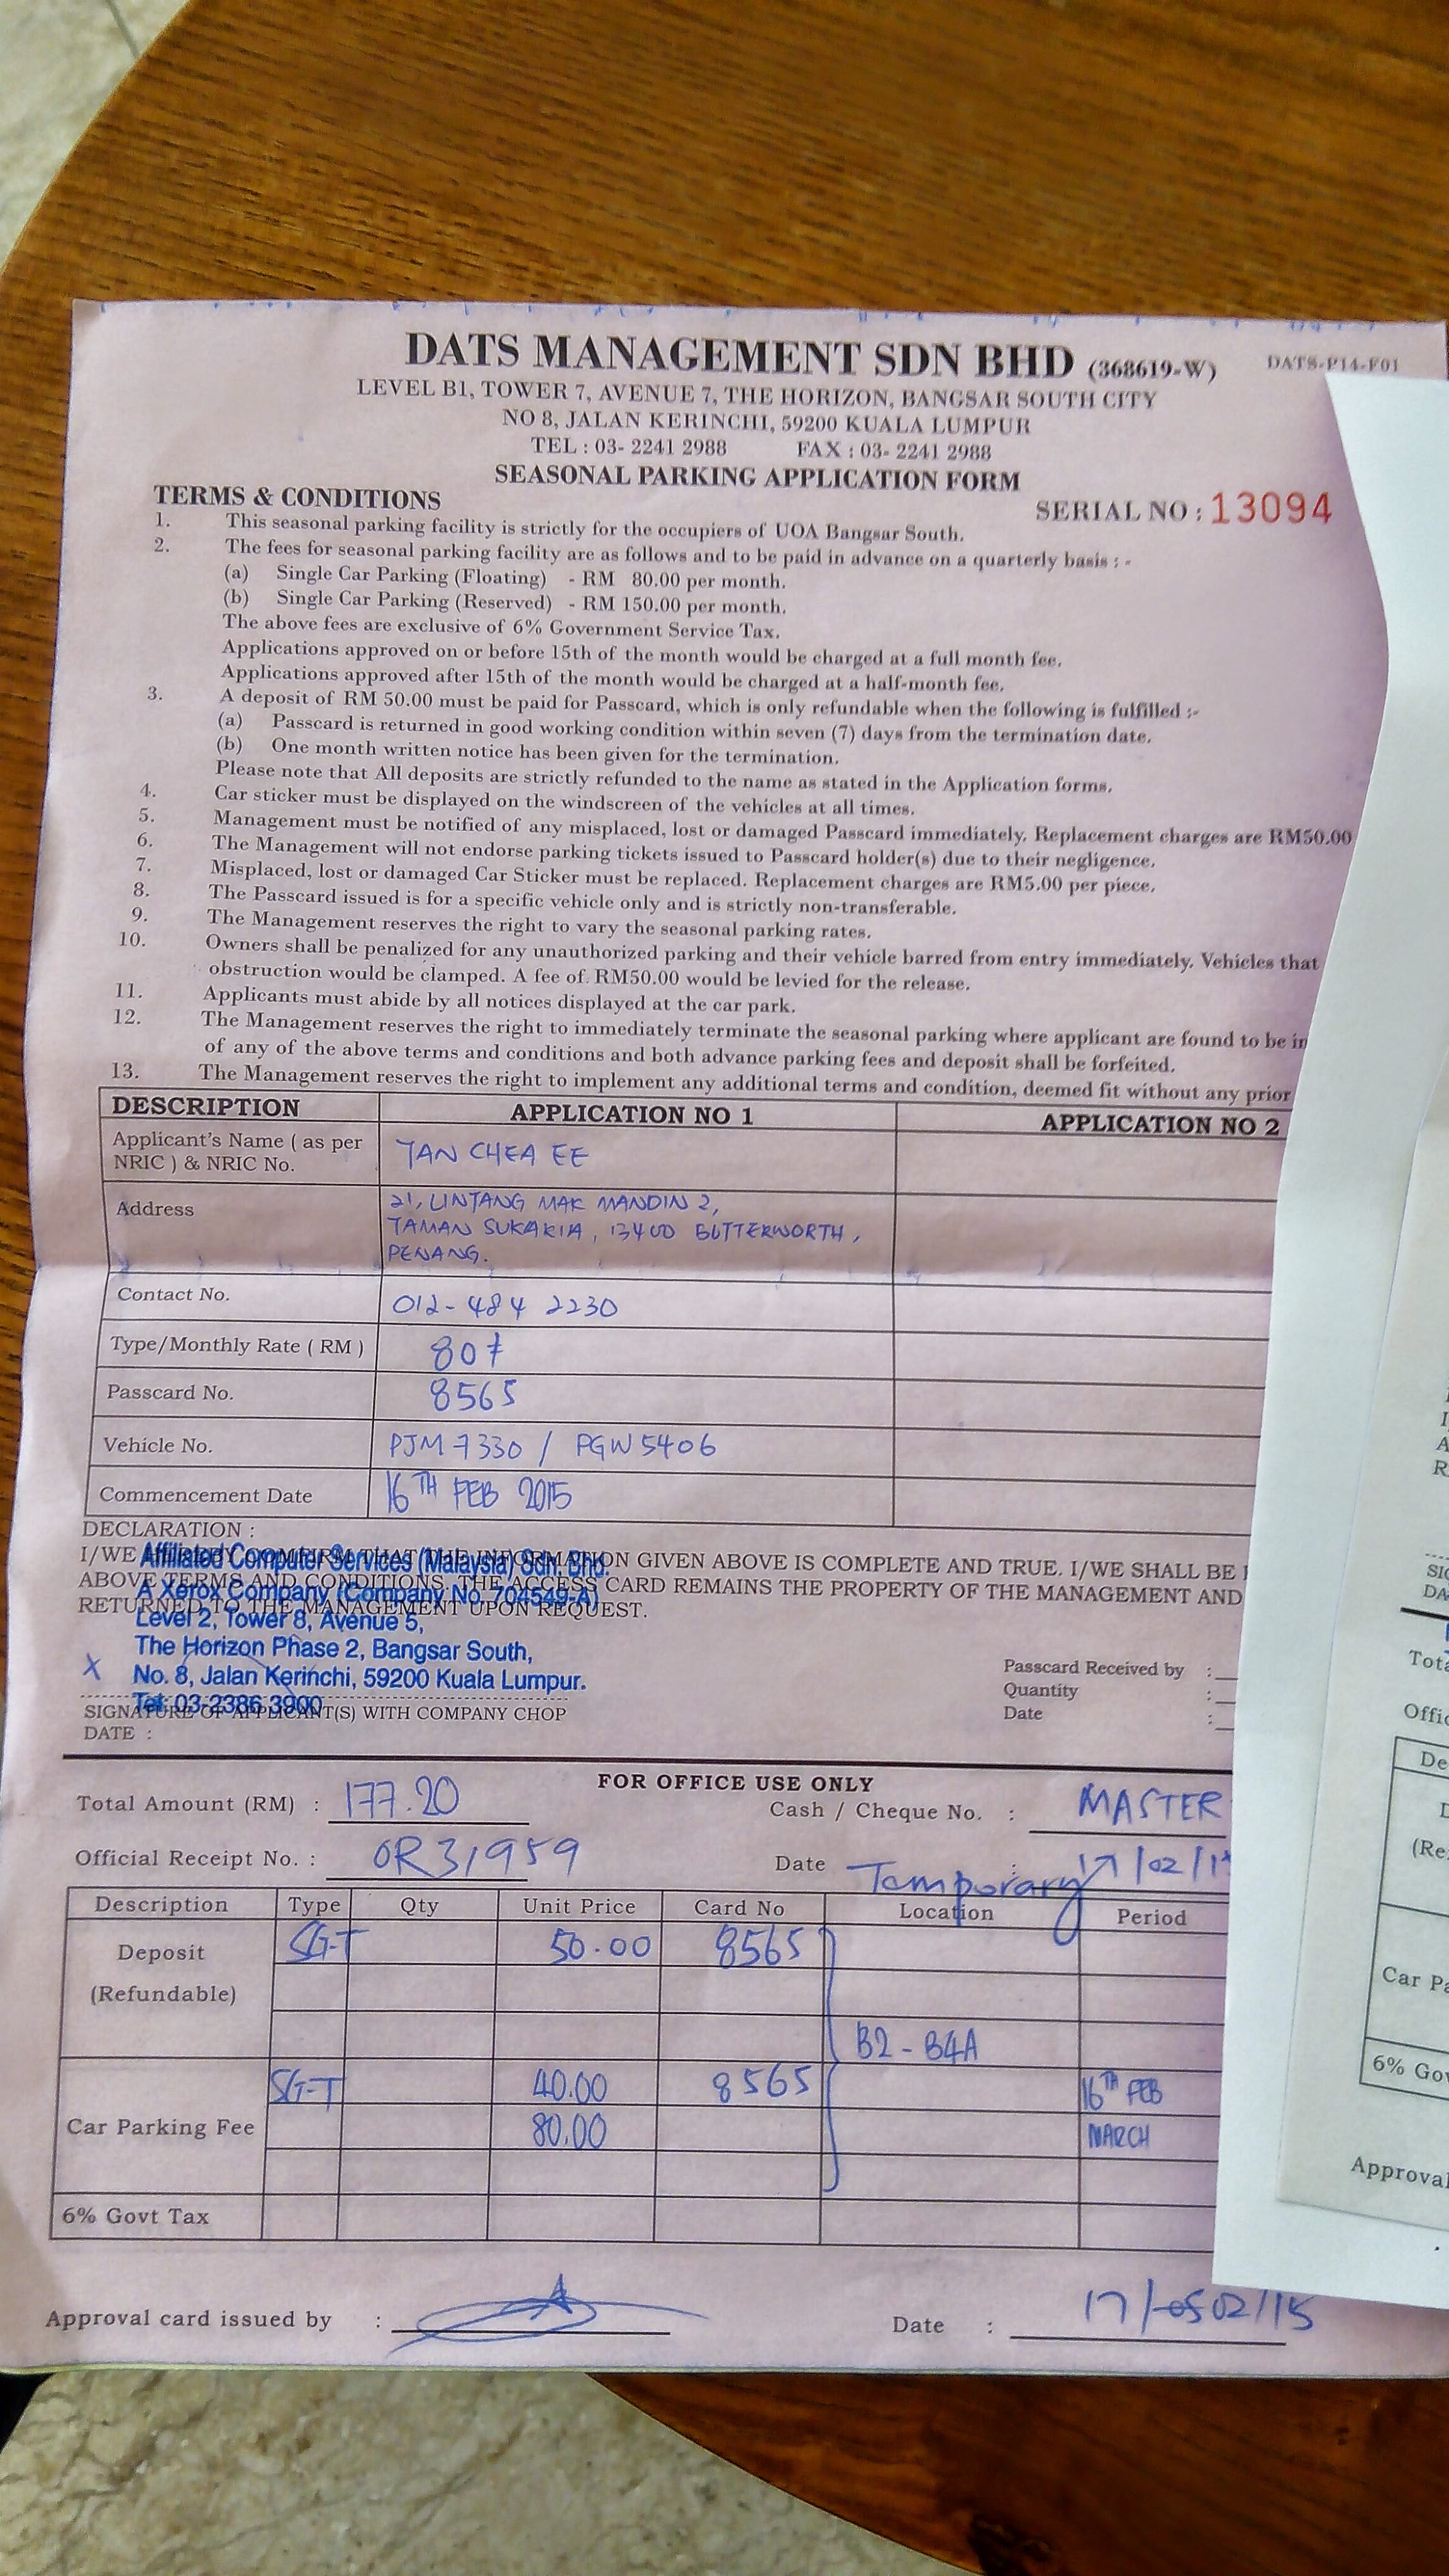 DATS MANAGEMENT SDN BHD (368619-W) DATS-P14-F01
LEVEL B1, TOWER 7, AVENUE 7, THE HORIZON, BANGSAR SOUTH CITY
NO 8, JALAN KERINCHI, 59200 KUALA LUMPUR
TEL : 03- 2241 2988 FAX : 03- 2241 2988
SEASONAL PARKING APPLICATION FORM
TERMS & CONDITIONS SERIAL NO : 13094
1. This seasonal parking facility is strictly for the occupiers of UOA Bangsar South.
2. The fees for seasonal parking facility are as follows and to be paid in advance on a quarterly basis : -
(a) Single Car Parking (Floating) - RM 80.00 per month.
(b) Single Car Parking (Reserved) - RM 150.00 per month.
The above fees are exclusive of 6% Government Service Tax.
Applications approved on or before 15th of the month would be charged at a full month fee.
Applications approved after 15th of the month would be charged at a half-month fee.
3. A deposit of RM 50.00 must be paid for Passcard, which is only refundable when the following is fulfilled :-
(a) Passcard is returned in good working condition within seven (7) days from the termination date.
(b) One month written notice has been given for the termination.
Please note that All deposits are strictly refunded to the name as stated in the Application forms.
4. Car sticker must be displayed on the windscreen of the vehicles at all times.
5. Management must be notified of any misplaced, lost or damaged Passcard immediately. Replacement charges are RM50.00
6. The Management will not endorse parking tickets issued to Passcard holder(s) due to their negligence.
7. Misplaced, lost or damaged Car Sticker must be replaced. Replacement charges are RM5.00 per piece.
8. The Passcard issued is for a specific vehicle only and is strictly non-transferable.
9. The Management reserves the right to vary the seasonal parking rates.
10. Owners shall be penalized for any unauthorized parking and their vehicle barred from entry immediately. Vehicles that
obstruction would be clamped. A fee of RM50.00 would be levied for the release.
11. Applicants must abide by all notices displayed at the car park.
12. The Management reserves the right to immediately terminate the seasonal parking where applicant are found to be in
of any of the above terms and conditions and both advance parking fees and deposit shall be forfeited.
13. The Management reserves the right to implement any additional terms and condition, deemed fit without any prior
DESCRIPTION APPLICATION NO 1 APPLICATION NO 2
Applicant's Name ( as per
NRIC ) & NRIC No. TAN CHEA EE
Address 21, LINTANG MAK MANDIN 2,
TAMAN SUKARIA, 13400 BUTTERWORTH,
PENANG.
Contact No. 012-484 2230
Type/Monthly Rate ( RM ) 80
Passcard No. 8565
Vehicle No. PJM 7330 / PGW 5406
Commencement Date 16TH FEB 2015
DECLARATION :
I/WE HEREBY CONFIRM THAT THE INFORMATION GIVEN ABOVE IS COMPLETE AND TRUE. I/WE SHALL BE
ABOVE TERMS AND CONDITIONS. THE ACCESS CARD REMAINS THE PROPERTY OF THE MANAGEMENT AND
RETURNED TO THE MANAGEMENT UPON REQUEST.
Affiliated Computer Services (Malaysia) Sdn. Bhd.
A Xerox Company (Company No. 704549-A)
Level 2, Tower 8, Avenue 5,
The Horizon Phase 2, Bangsar South,
X No. 8, Jalan Kerinchi, 59200 Kuala Lumpur.
Tel: 03-2386 3900
SIGNATURE OF APPLICANT(S) WITH COMPANY CHOP
DATE :
Passcard Received by :
Quantity :
Date :
FOR OFFICE USE ONLY
Total Amount (RM) : 177.20 Cash / Cheque No. : MASTER
Official Receipt No. : OR31959 Date : 17/02/1
Temporary
Description Type Qty Unit Price Card No Location Period
Deposit SG-T 50.00 8565
(Refundable)
B2 - B4A
SG-T 40.00 8565 16TH FEB
Car Parking Fee 80.00 MARCH
6% Govt Tax
Approval card issued by : Date : 17/02/15
Tota
Offic
De
(Re
Car Pa
6% Gov
Approval